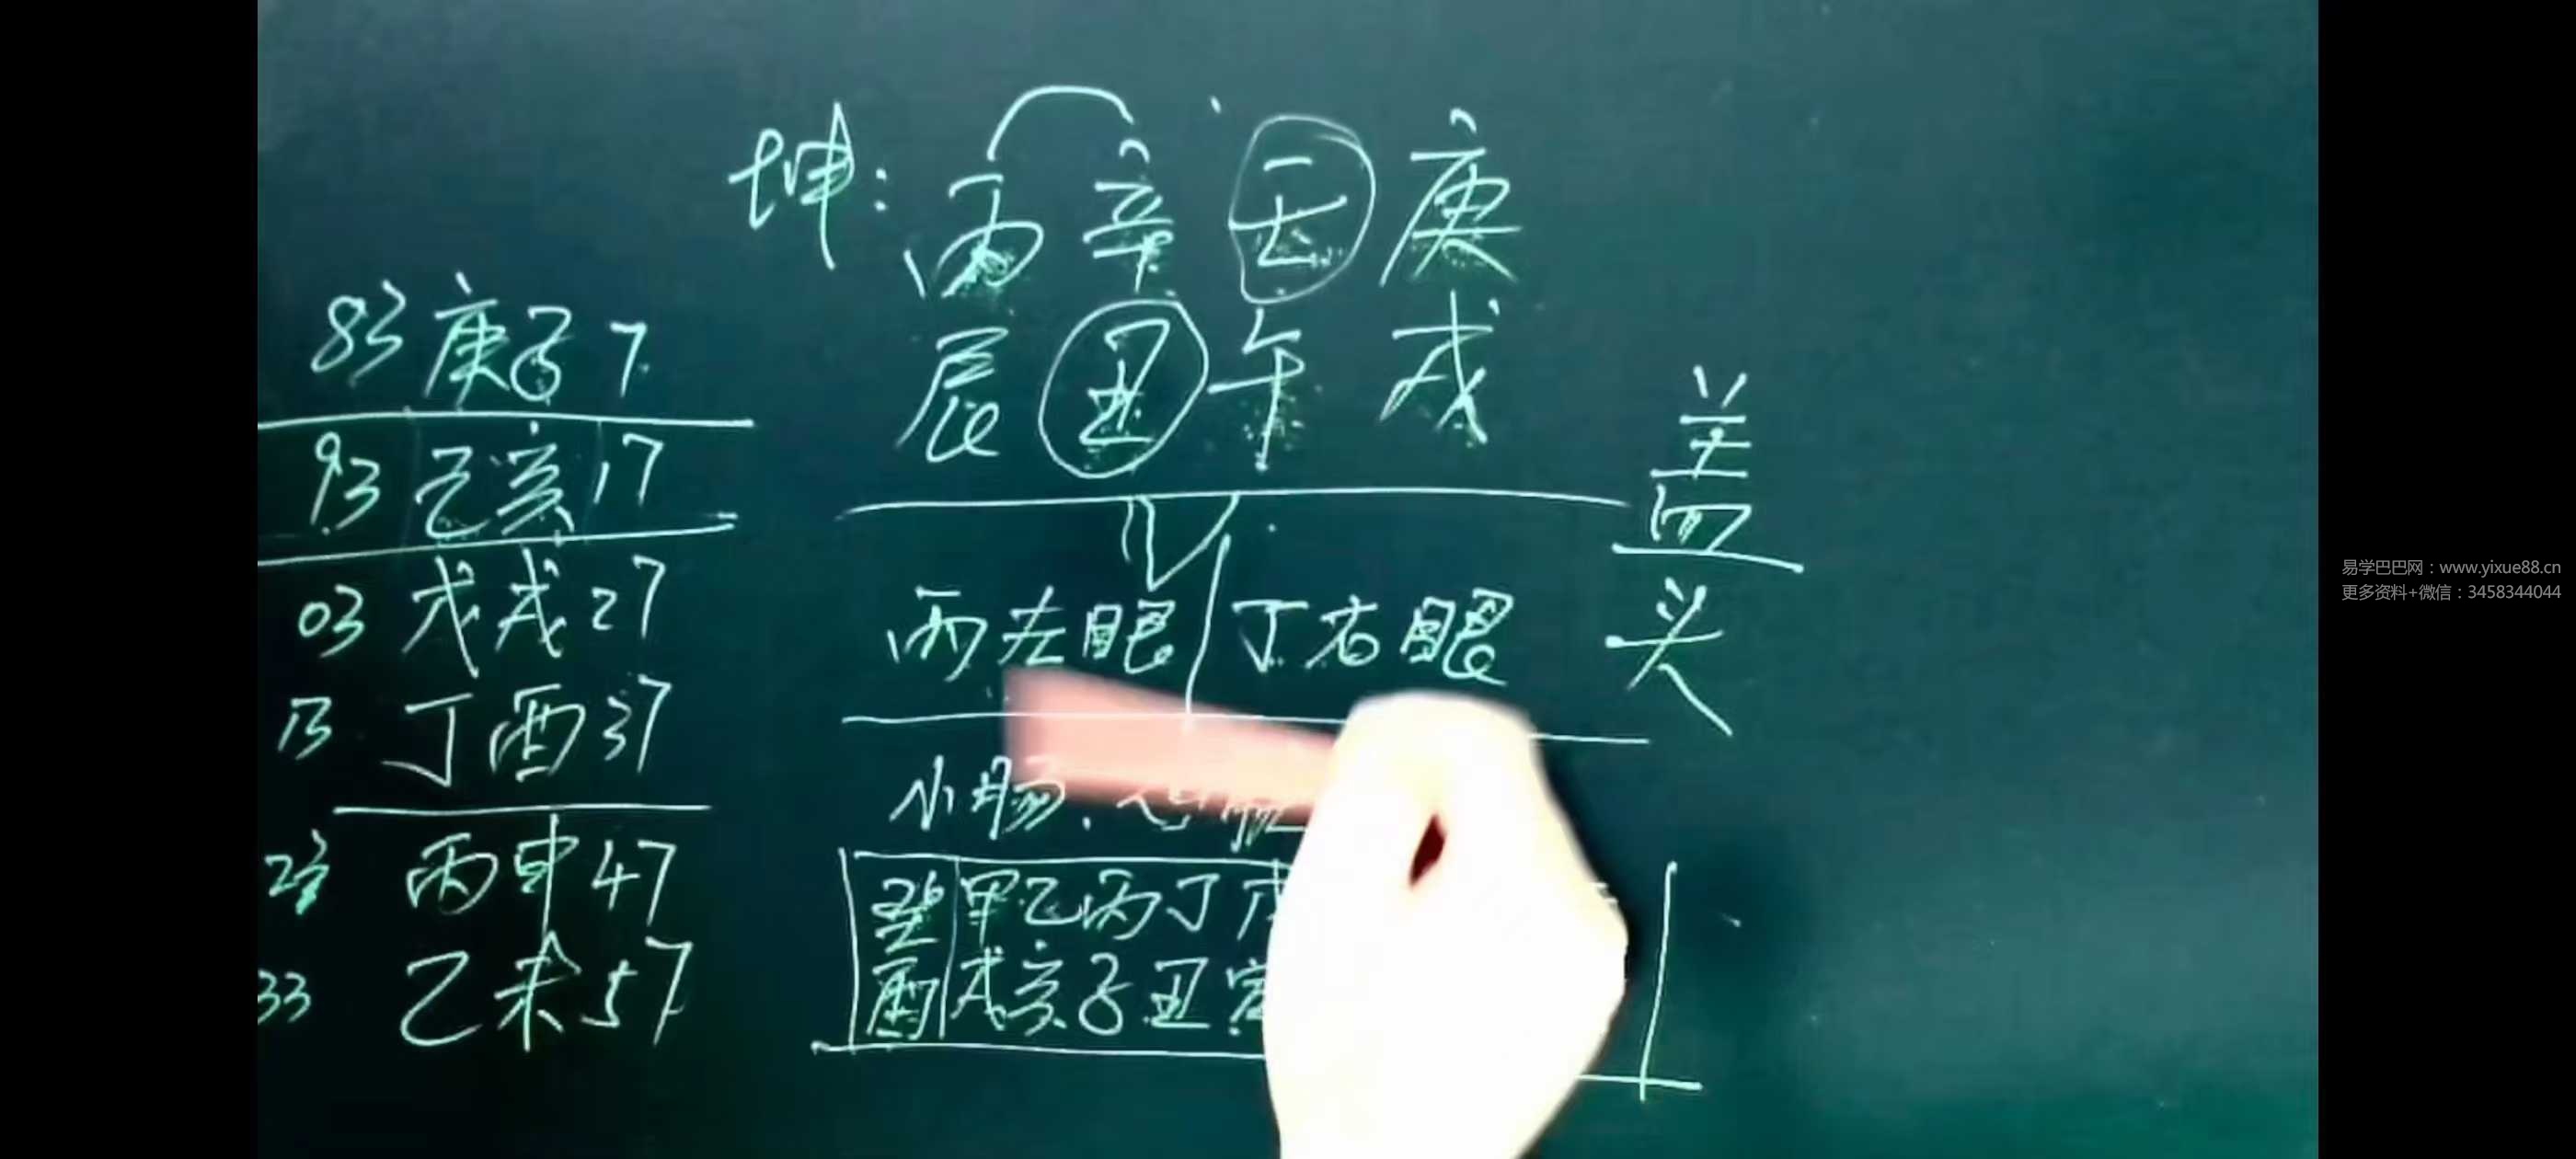 坤：丙辛壬庚
辰丑午戌
83 庚子 7
93 己亥 17
03 戊戌 27
13 丁酉 37
23 丙申 47
33 乙未 57
丙左眼 丁右眼
小肠、心脏
癸 甲乙丙丁戊
酉 戌亥子丑寅
盖头
易学巴巴网：www.yixue88.cn
更多资料+微信：3458344044